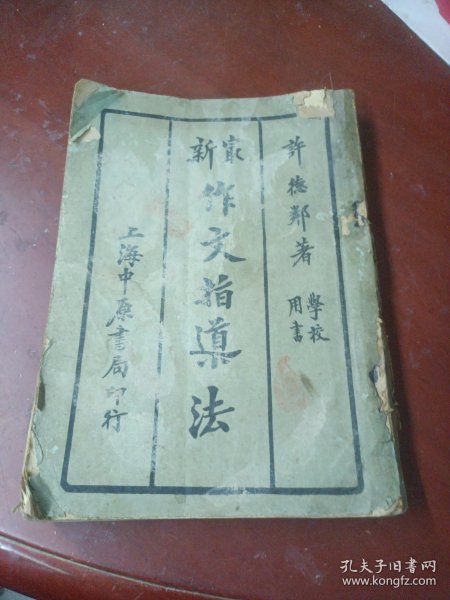 許德鄰著
學校
用書
㝡新
作文指導法
上海中原書局印行
孔夫子旧书网
www.kongfz.com